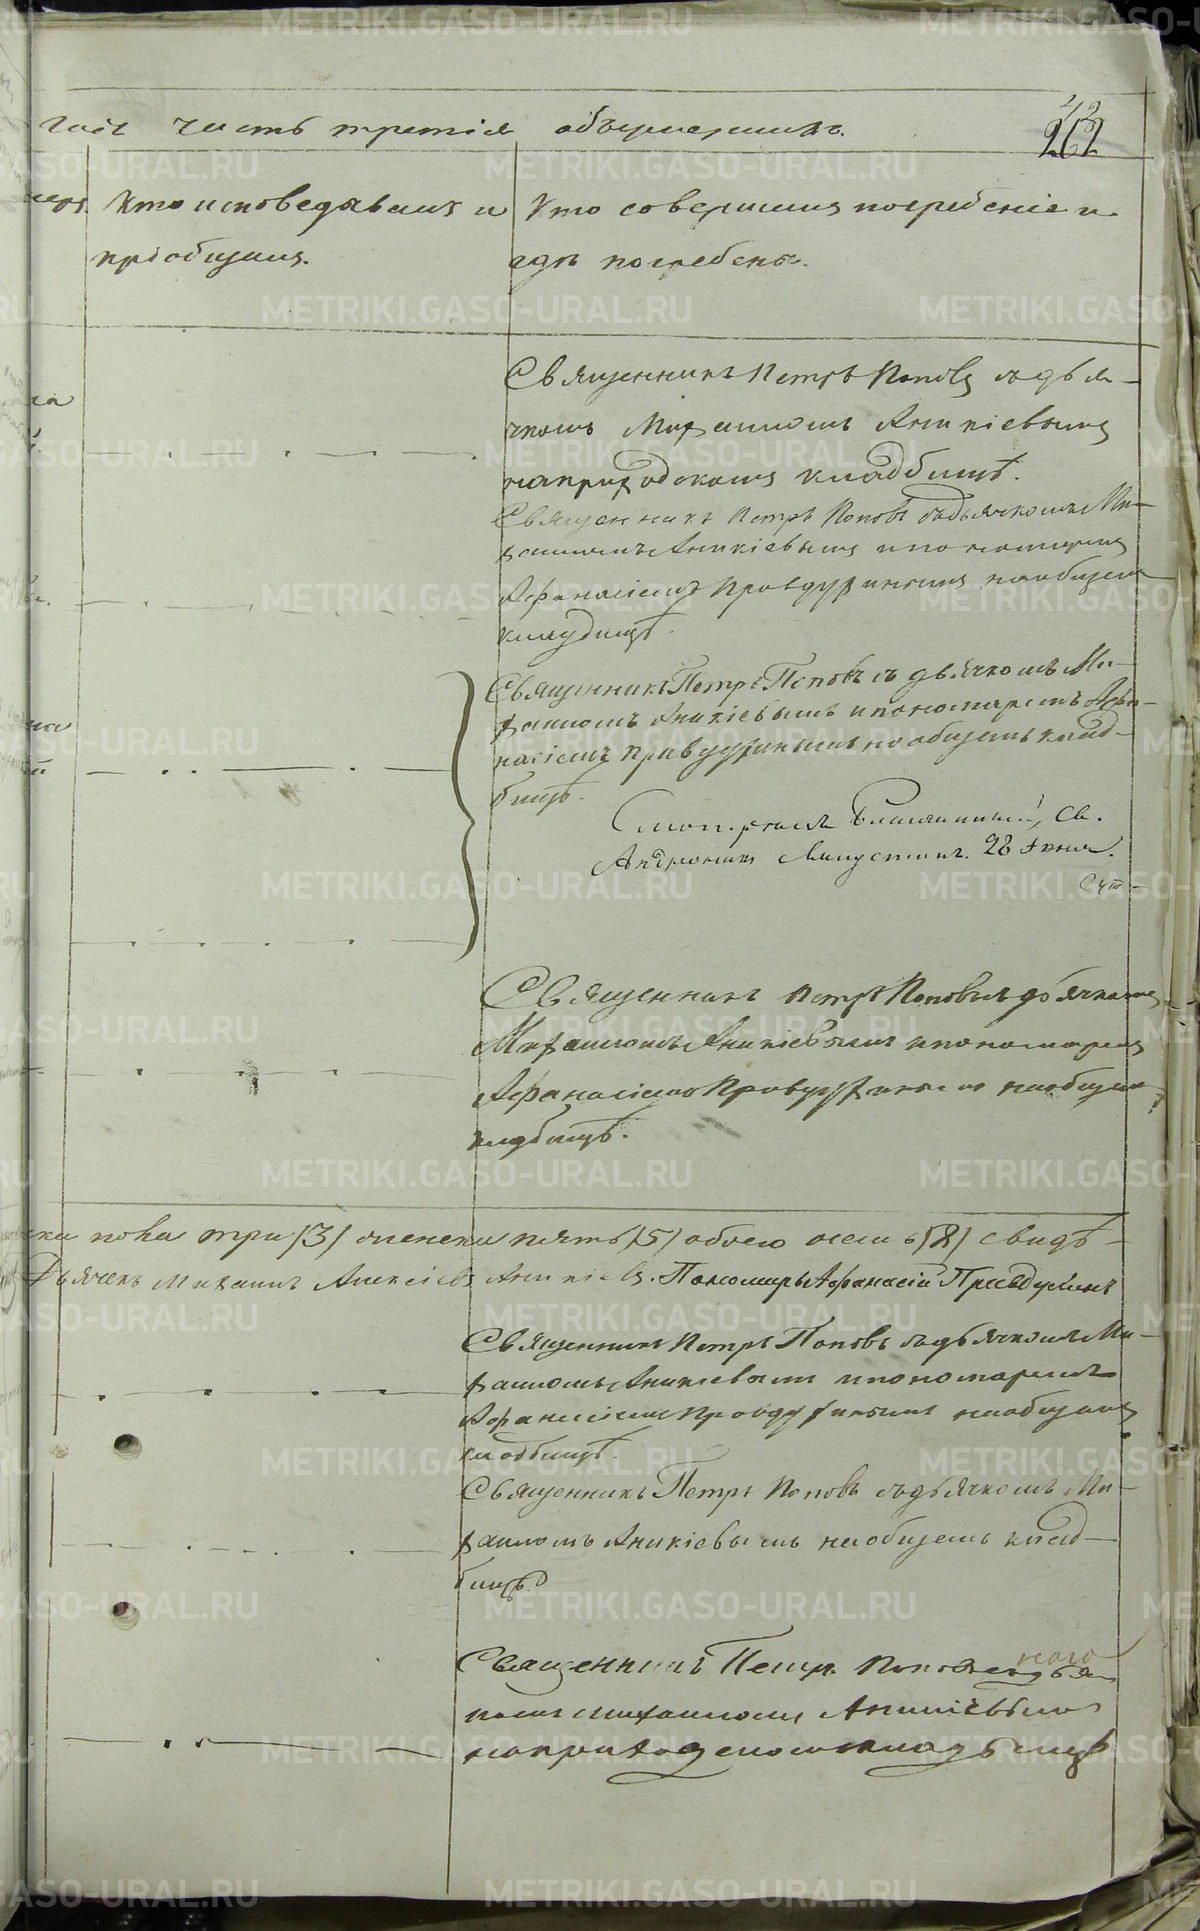 часть третія объ умершихъ.
Кто исповедывалъ и
пріобщалъ.
Кто совершилъ погребеніе и
гдѣ погребены.
Священникъ Петръ Поповъ съ дья-
чкомъ Михаиломъ Аникіевымъ
на приходскомъ кладбищѣ.
Священникъ Петръ Поповъ съ дьячкомъ Ми-
хаиломъ Аникіевымъ и пономаремъ
Афанасіемъ Правдухинымъ на общемъ
кладбищѣ.
Священникъ Петръ Поповъ съ дьячкомъ Ми-
хаиломъ Аникіевымъ и пономаремъ Афа-
насіемъ Правдухинымъ на общемъ клад-
бищѣ.
Смотрѣлъ Благочинный, Св.
28 Іюня.
Священникъ Петръ Поповъ съ дьячкомъ
Михаиломъ Аникіевымъ и пономаремъ
Афанасіемъ Правдухинымъ на общемъ
кладбищѣ.
пола три (3) женска пять (5) обоего осемь (8) свидѣ-
Дьячекъ Михаилъ Алексѣевъ Аникіевъ. Пономарь Афанасій Правдухинъ
Священникъ Петръ Поповъ съ дьячкомъ Ми-
хаиломъ Аникіевымъ и пономаремъ
Афанасіемъ Правдухинымъ на общемъ
кладбищѣ.
Священникъ Петръ Поповъ съ дьячкомъ Ми-
хаиломъ Аникіевымъ на общемъ клад-
бищѣ.
Священникъ Петръ Поповъ съ дья
комъ Михаиломъ Аникіевымъ
на приходскомъ кладбищѣ
METRIKI.GASO-URAL.RU